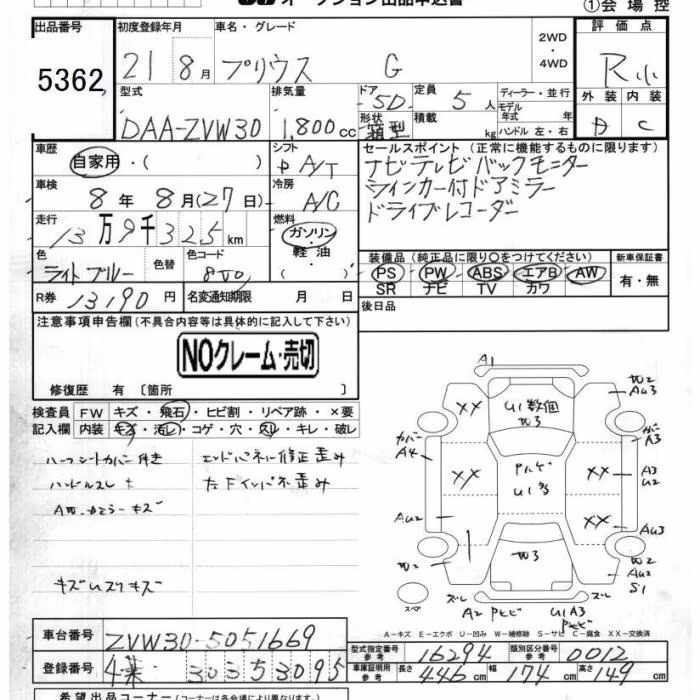 オークション出品申込書
①会場控
出品番号 5362
初度登録年月 21 8月
車名・グレード プリウス G
2WD・4WD
評価点 R小
外装 内装 C
型式 DAA-ZVW30
排気量 1,800cc
ドア 5D
形状 箱型
定員 5人
積載 kg
ディーラー・並行
モデル年式 年式
ハンドル 左・右
車歴 自家用・( )
シフト A/T
セールスポイント(正常に機能するものに限ります)
ナビテレビバックモニター
ウインカー付ドアミラー
ドライブレコーダー
車検 8年 8月(27日)
冷房 A/C
走行 13万9千325km
燃料 ガソリン・軽油・( )
色 ライトブルー
色替
色コード
装備品(純正品に限り○をつけてください)
PS PW ABS エアB AW
SR ナビ TV カワ
新車保証書 有・無
R券 13190円
名変通知期限 月 日
後日品
注意事項申告欄(不具合内容等は具体的に記入して下さい)
NOクレーム・売切
修復歴 有〔箇所 〕
検査員記入欄
FW キズ・飛石・ヒビ割・リペア跡・×要
内装 キズ・汚レ・コゲ・穴・スレ・キレ・破レ
ハーフシートカバー付き
エンドパネル修正歪み
ハンドルスレ
左Fインパネ歪み
キズ
A1
XX
U1数個
W3
W2
AU3
カバー
A4
A3
XX
U1多
XX
A3
U2
AU2
XX
AU3
W2
W3
W2
AU2
S1
スペア
スレ
A2
U1A3
スレ
A-キズ E-エクボ U-凹み W-補修跡 S-サビ C-腐食 XX-交換済
車台番号 ZVW30-5051669
型式指定番号 参考 16294
類別区分番号 参考 0012
登録番号 303 53095
車庫証明用 参考
長さ 446cm 幅 174cm 高さ 149cm
希望出品コーナー(コーナーは各会場により異なります。)